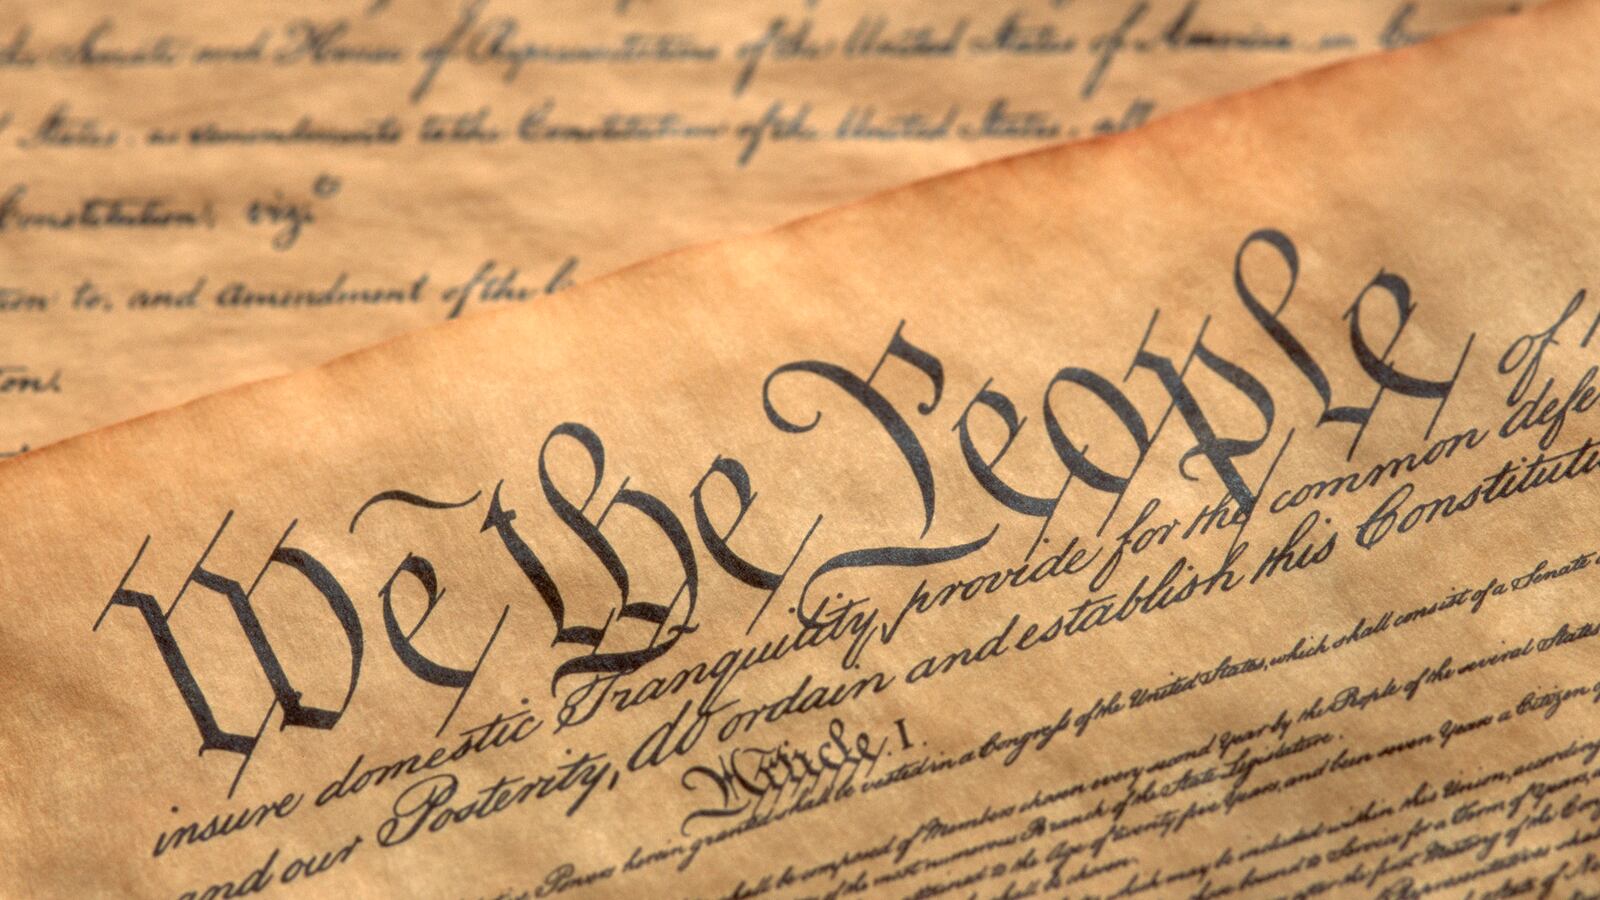 the Senate and House of Representatives of the United States of America, in
States, as amendments to the Constitution of the United States, all
Constitution, viz.t
to, and Amendment of the
We the People of
insure domestic Tranquility, provide for the common defe
and our Posterity, do ordain and establish this Constituti
Article. I.
Powers herein granted shall be vested in a Congress of the United States, which shall consist of a Senate
shall be composed of Members chosen every second Year by the People of the several States
of the most numerous Branch of the State Legislature.
attained to the Age of twenty five Years, and been seven Years a Citizen of
shall be chosen.
which may be included within this Union, according
bound to Service for a Term of Years,
after the first Meeting of the Con
Representatives
State of